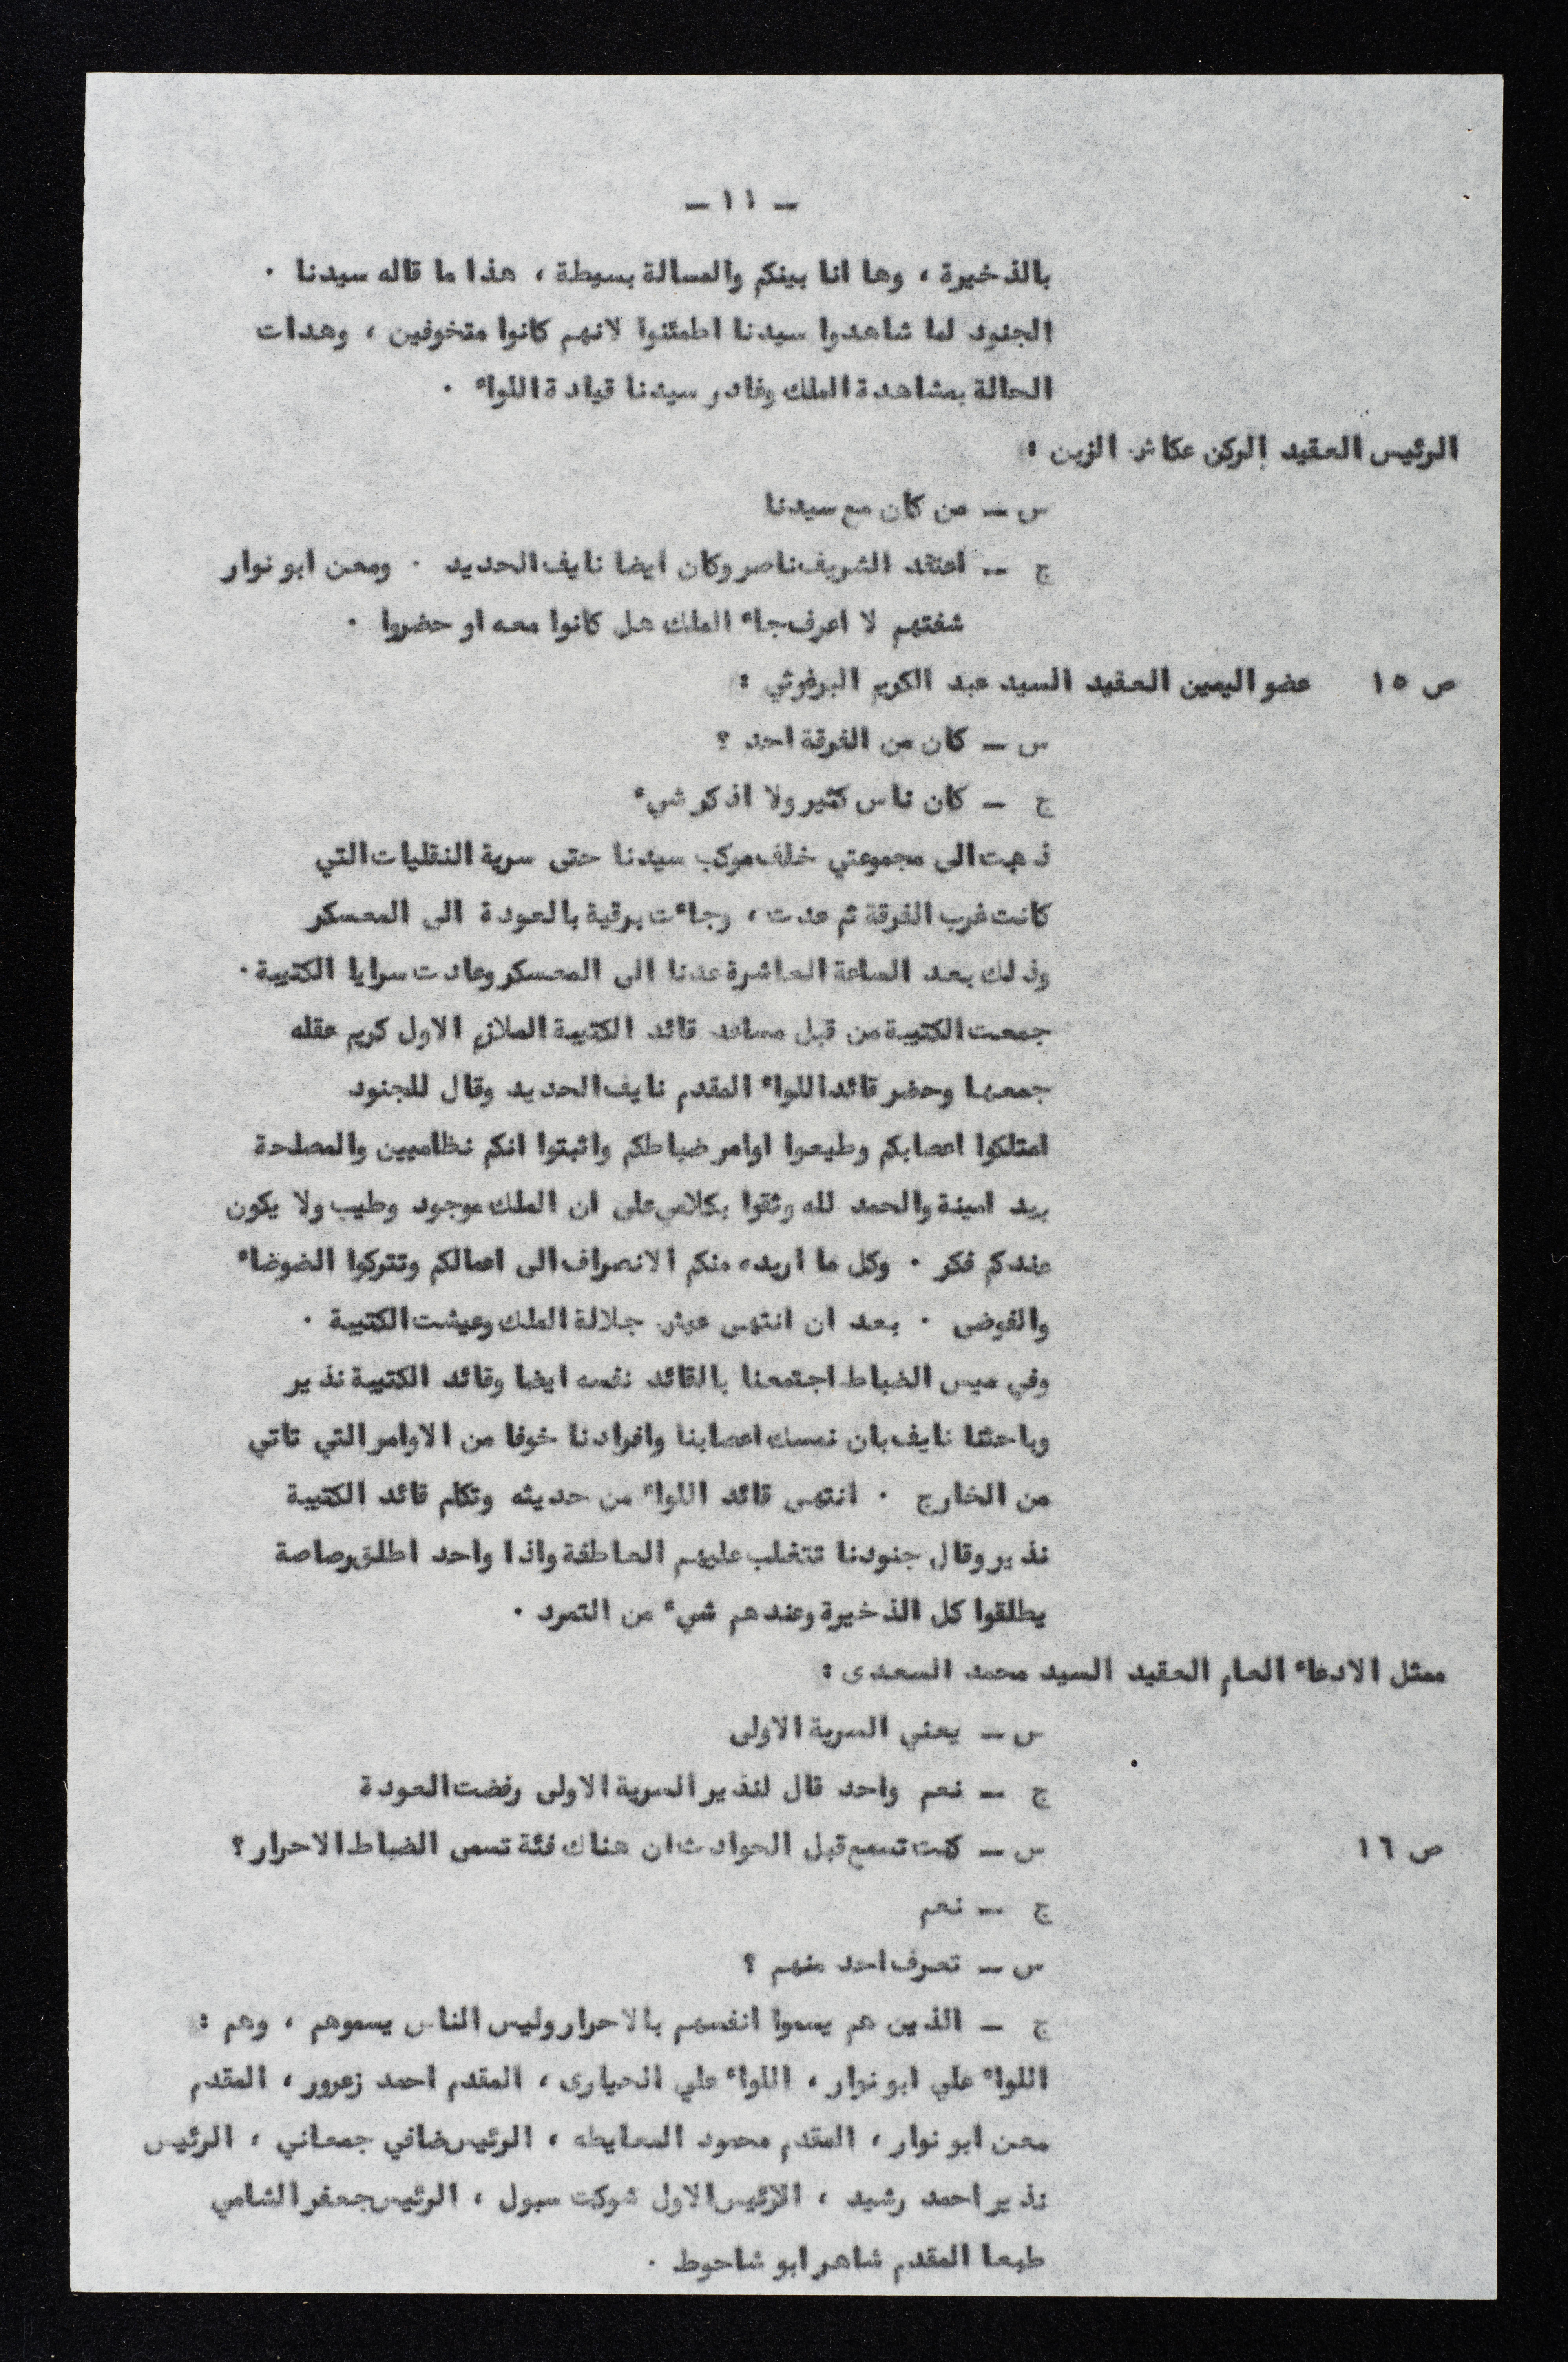 — ١١ —
بالذخيرة ، وها انا بينكم والمسالة بسيطة ، هذا ما قاله سيدنا .
الجنود لما شاهدوا سيدنا اطمئنوا لانهم كانوا متخوفين ، وهدات
الحالة بمشاهدة الملك وغادر سيدنا قيادة اللواء .
الرئيس العقيد الركن عكاش الزبن :
س — من كان مع سيدنا
ج — اعتقد الشريف ناصر وكان ايضا نايف الحديد . ومعن ابو نوار
شفتهم لا اعرف جاء الملك هل كانوا معه او حضروا .
ص ١٥ عضو اليمين العقيد السيد عبد الكريم البرغوثي :
س — كان من الفرقة احد ؟
ج — كان ناس كثير ولا اذكر شيء
ذهبت الى مجموعتي خلف موكب سيدنا حتى سرية النقليات التي
كانت غرب الفرقة ثم عدت ، وجاءت برقية بالعودة الى المعسكر
وذلك بعد الساعة العاشرة عدنا الى المعسكر وعادت سرايا الكتيبة .
جمعت الكتيبة من قبل مساعد قائد الكتيبة الملازم الاول كريم عقله
جمعها وحضر قائد اللواء المقدم نايف الحديد وقال للجنود
امتلكوا اعصابكم وطيعوا اوامر ضباطكم واثبتوا انكم نظاميين والمصلحة
بيد امينة والحمد لله وثقوا بكلامي على ان الملك موجود وطيب ولا يكون
عندكم فكر . وكل ما اريده منكم الانصراف الى اعمالكم وتتركوا الضوضاء
والفوضى . بعد ان انتهى عيش جلالة الملك وعيشت الكتيبة .
وفي ميس الضباط اجتمعنا بالقائد نفسه ايضا وقائد الكتيبة نذير
وباحثنا نايف بان نمسك اعصابنا وافرادنا خوفا من الاوامر التي تاتي
من الخارج . انتهى قائد اللواء من حديثه وتكلم قائد الكتيبة
نذير وقال جنودنا تتغلب عليهم العاطفة واذا واحد اطلق رصاصة
يطلقوا كل الذخيرة وعندهم شيء من التمرد .
ممثل الادعاء العام العقيد السيد محمد السعدى :
س — يعني السرية الاولى
ج — نعم واحد قال لنذير السرية الاولى رفضت العودة
ص ١٦ س — كنت تسمع قبل الحوادث ان هناك فئة تسمى الضباط الاحرار ؟
ج — نعم
س — تعرف احد منهم ؟
ج — الذين هم يسموا انفسهم بالاحرار وليس الناس يسموهم ، وهم :
اللواء علي ابو نوار ، اللواء علي الحيارى ، المقدم احمد زعرور ، المقدم
معن ابو نوار ، المقدم محمود المعايطه ، الرئيس ضافي جمعاني ، الرئيس
نذير احمد رشيد ، الرئيس الاول شوكت سبول ، الرئيس جعفر الشامي
طبعا المقدم شاهر ابو شاحوط .